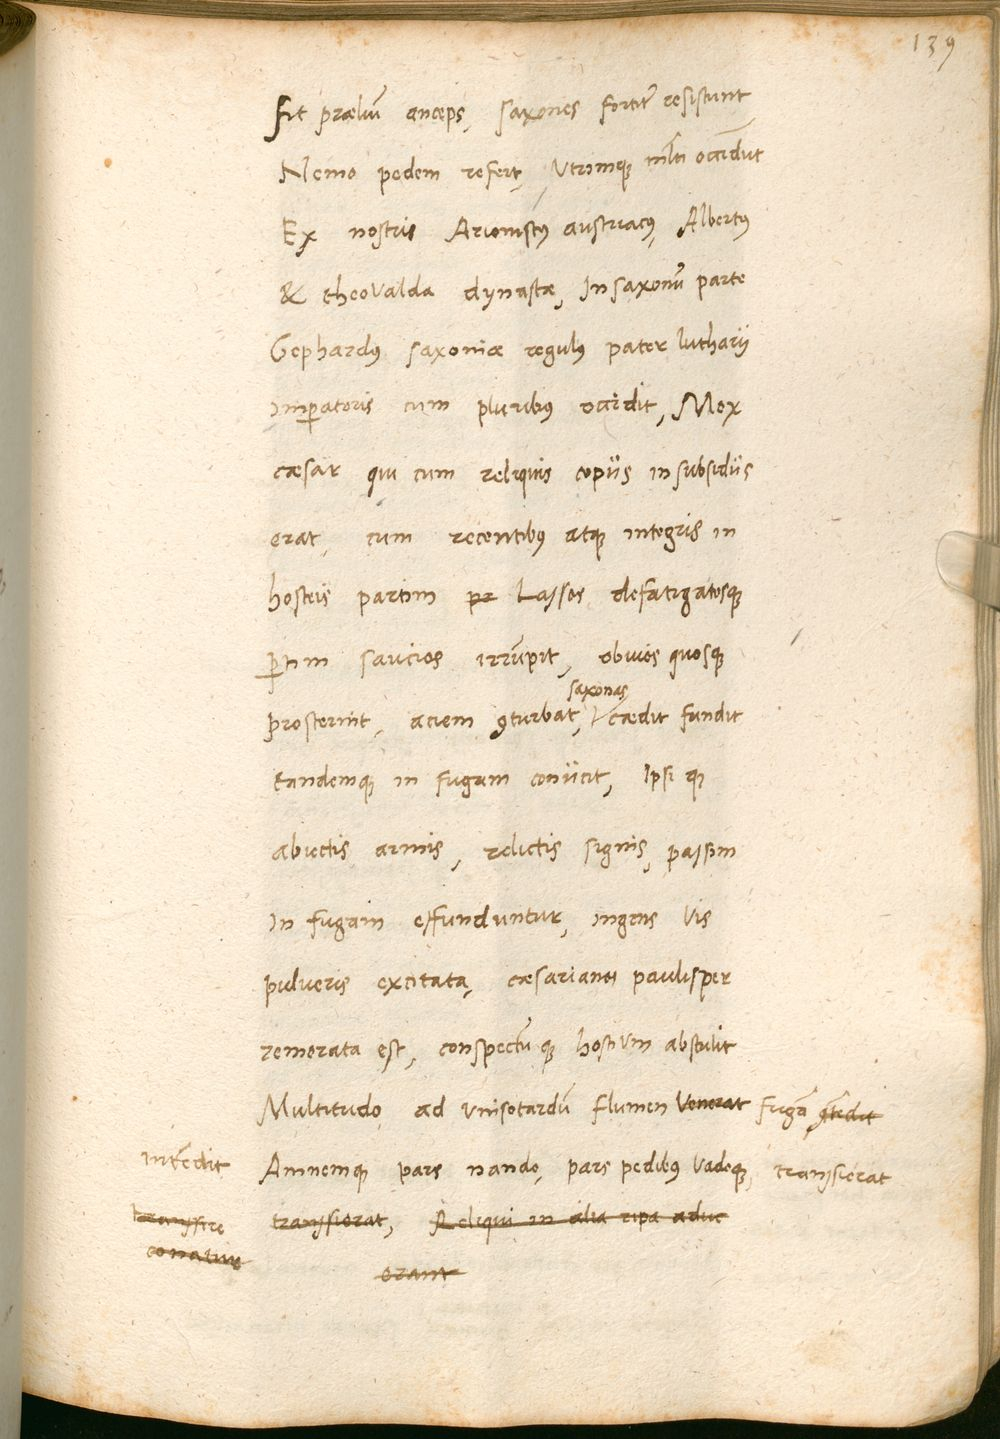 139
Fit præliũ anceps, saxones fortit̃ resistunt
Nemo pedem refert, Vtrimq̃ ml̃ti occidũt
Ex nostris Arionistus austriacus, Albertus
& theoValda dynastæ, In saxonũ parte
Gephardus saxoniæ regulus pater lutharij
Imꝑatoris cum pluribus occidit, Mox
cæsar qui cum reliquis copiis in subsidiis
erat, cum recentibus atq̃ integris in
hosteis partim pr Lassos defatigatosq̃
ꝑtim saucios irrũpit, obuios quosq̃
saxonas
prosternit, aciem ꝯturbat, cædit fundit
tandemq̃ in fugam coniicit, Ipsi q̃
abiectis armis, relictis signis, passim
In fugam effunduntur, ingens Vis
pulueris excitata, cæsarianos paulisper
remorata est, conspectũ q̃ hostium abstulit
Multitudo ad Vnisotardũ flumen Venerat fugã ꝯtẽdit
intẽdit Amnemq̃ pars nando, pars pedibus Vadoq̃, transierat
transsire transierat, Reliqui in alia ripa aduc
conatur erant